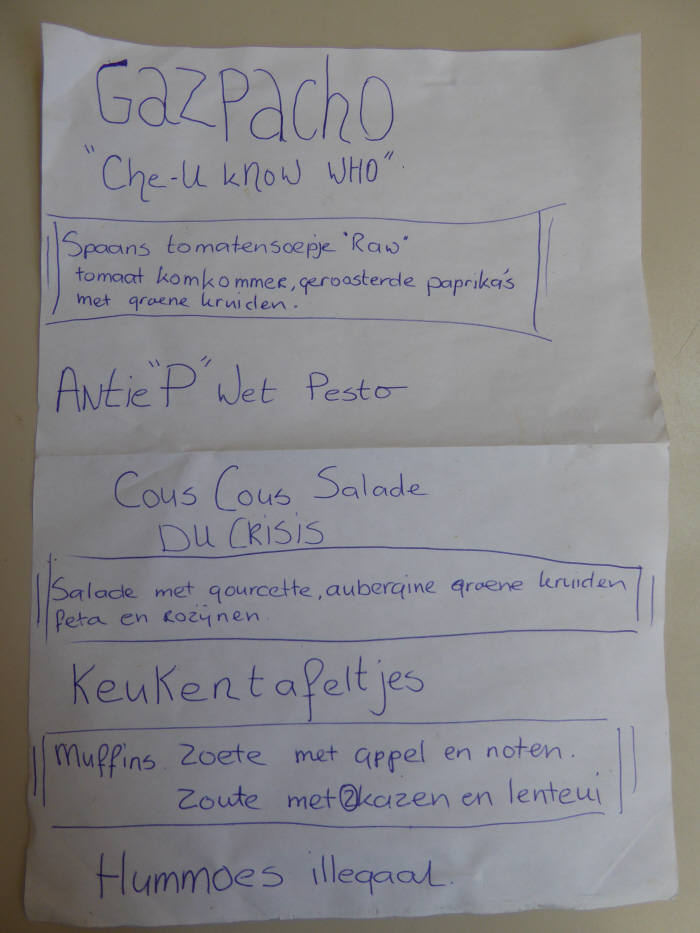 Gazpacho
"Che-U know WHO".
Spaans tomatensoepje "Raw"
tomaat komkommer, geroosterde paprika's
met groene kruiden.
Antie "P" Wet Pesto
Cous Cous Salade
DU CRISIS
Salade met gourcette, aubergine groene kruiden
feta en rozijnen.
Keukentafeltjes
Muffins. Zoete met appel en noten.
Zoute met 2 kazen en lenteui
Hummoes illegaal.